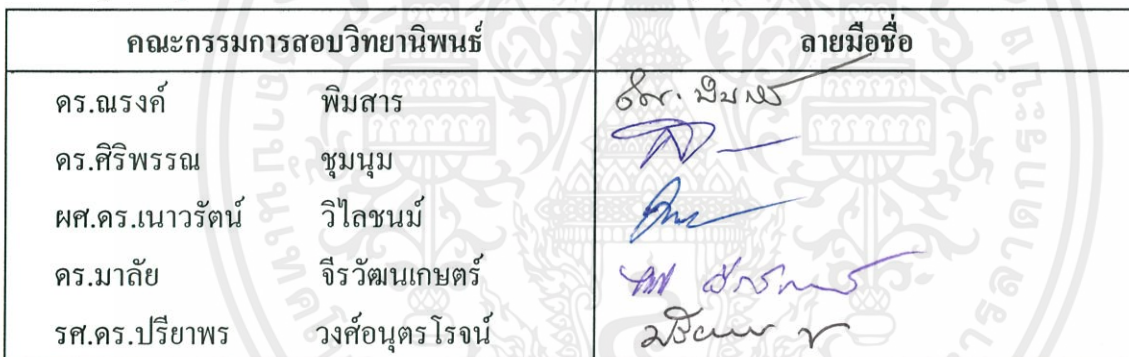 คณะกรรมการสอบวิทยานิพนธ์ ลายมือชื่อ
ดร.ณรงค์ พิมสาร
ดร.ศิริพรรณ ชุมนุม
ผศ.ดร.เนาวรัตน์ วิไลชนม์
ดร.มาลัย จีรวัฒนเกษตร์
รศ.ดร.ปรียาพร วงศ์อนุตรโรจน์